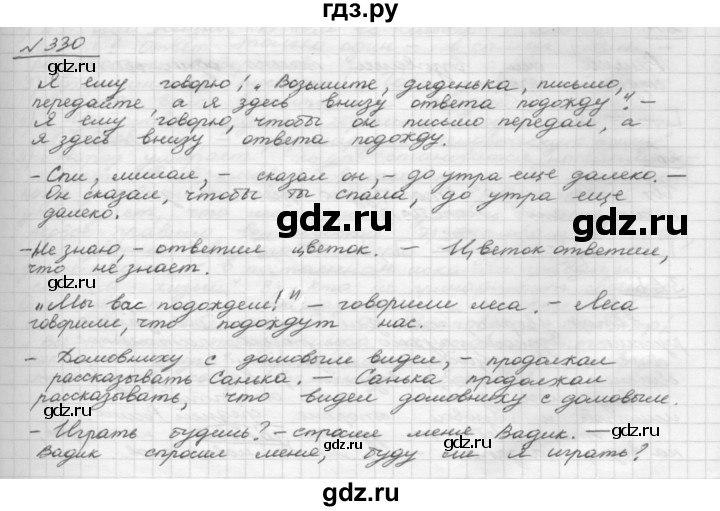 гдз.ру
№330
Я ему говорю: „Возьмите, дяденька, письмо,
передайте, а я здесь внизу ответа подожду". –
Я ему говорю, чтобы он письмо передал, а
я здесь внизу ответа подожду.
- Спи, милая, – сказал он, – до утра еще далеко. –
Он сказал, чтобы ты спала, до утра еще
далеко.
gdz.ru
gdz.ru
- Не знаю, – ответил цветок. – Цветок ответил,
что не знает.
„Мы вас подождем!" – говорили леса. – Леса
говорили, что подождут нас.
- Домовниху с домовым видел, – продолжал
рассказывать Санька. – Санька продолжал
рассказывать, что видел домовниху с домовым.
- Играть будешь? – спросил меня Вадик. –
Вадик спросил меня, буду ли я играть?
gdz.ru
gdz.ru
gdz.ru